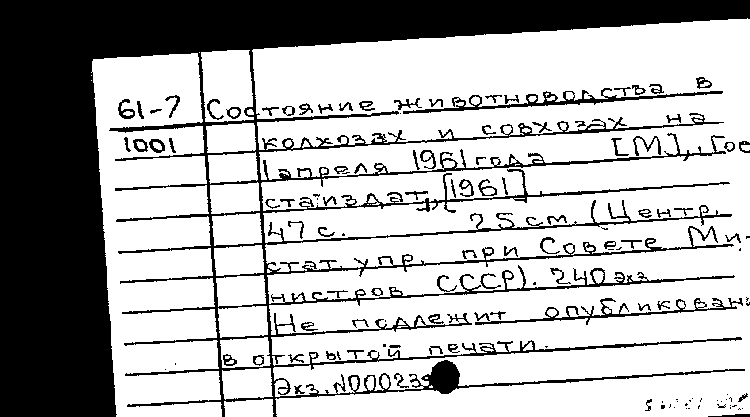 61-7 Состояние животноводства в
1001 колхозах и совхозах на
1 апреля 1961 года [М], Гос
статиздат, [1961].
47 с. 25 см. (Центр.
стат. упр. при Совете Ми-
нистров СССР). 240 экз.
Не подлежит опубликовани
в открытой печати.
Экз. N00023